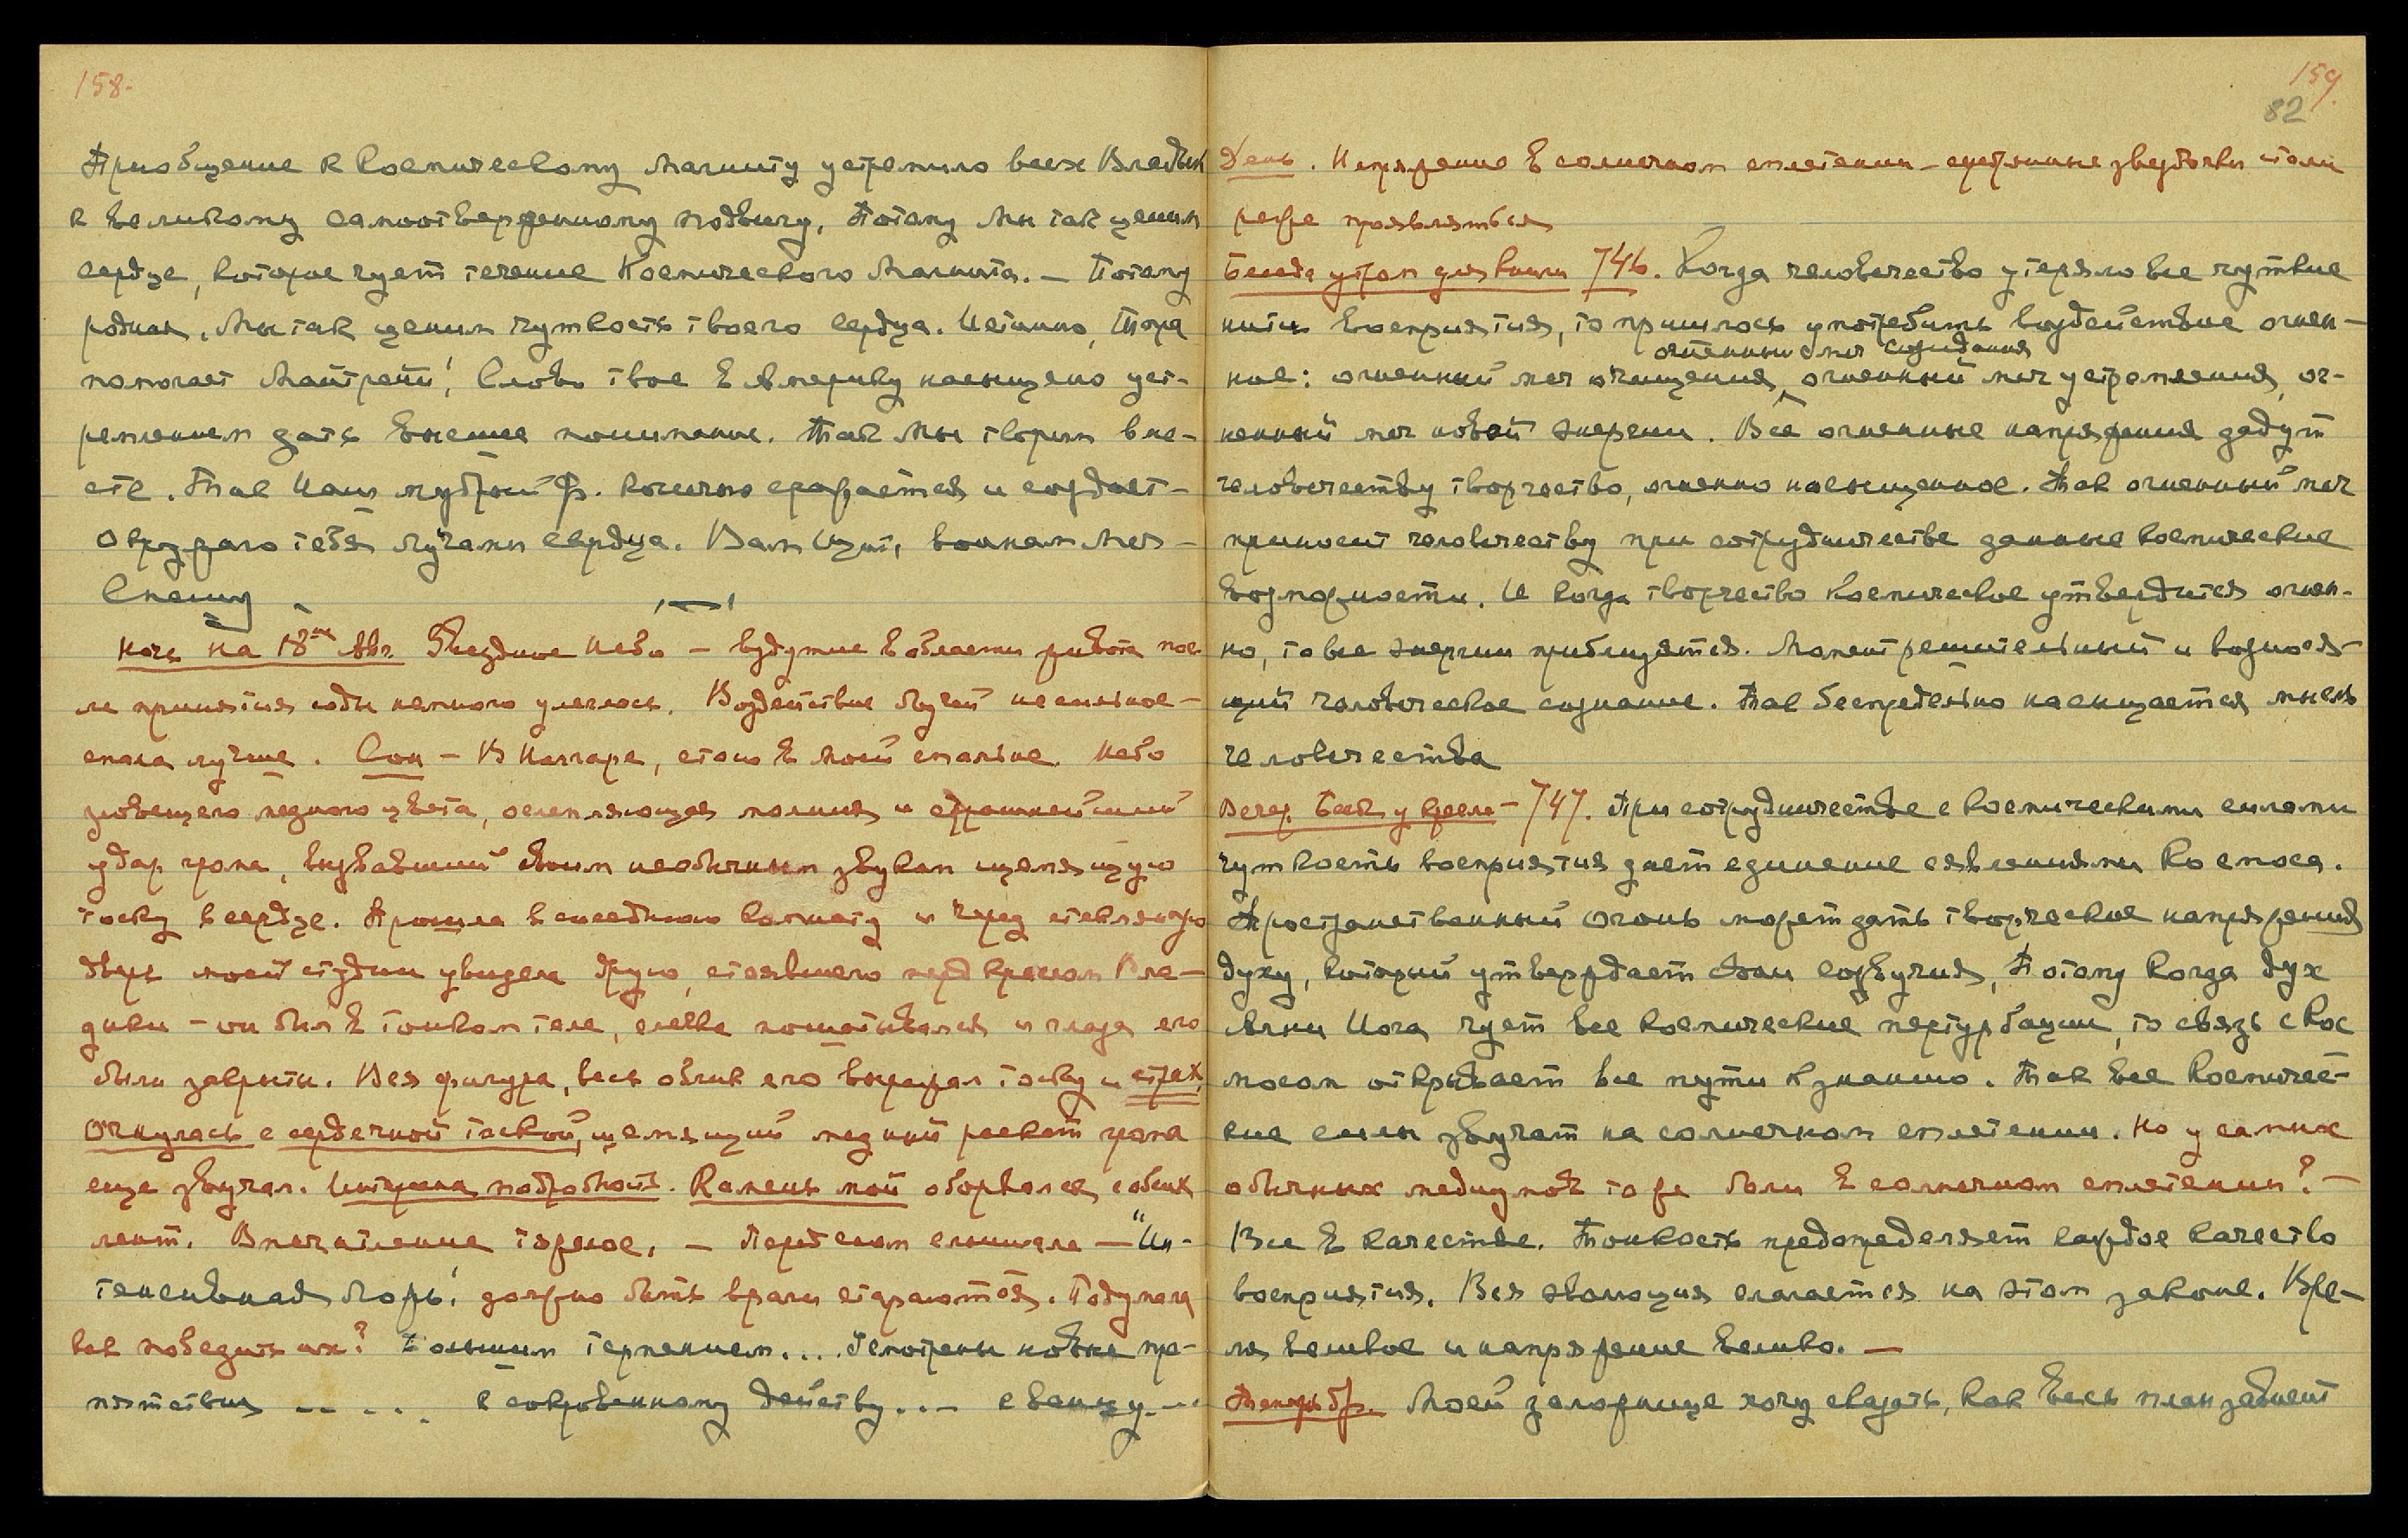 158.
Приобщение к Космическому Магниту устремило всех Владык
к великому самоотверженному подвигу, потому мы так ценим
сердце, которое чует течение Космического Магнита. – Потому
родная, Мы так ценим чуткость твоего сердца. Истинно, Тара
помогает Майтрейи! Слово твое в Америку насыщено уст-
ремлением дать высшее понимание. Так Мы творим вме-
сте. Так Наш мудрый Ф. конечно сражается и создает –
Окружаю тебя лучами сердца. Вам идут, воинам Моя –
Спешу
Ночь на 18ое Авг. Звездное небо – вздутие в области живота пос-
ле принятия соды немного улеглось. Воздействие Лучей несильное –
спала лучше. Сон – В Наггаре, стою в моей спальне. Небо
зловещего медного цвета, ослепляющая молния и страшнейший
удар грома, вызвавший своим необычным звуком щемящую
тоску в сердце. Прошла в соседнюю комнату и через стеклянную
дверь моей студии увидела Юрия, стоявшего перед креслом Вла-
дыки – он был в тонком теле, слегка пошатывался и глаза его
были закрыты. Вся фигура, весь облик его выражал тоску и страх,
Очнулась с сердечной тоской, щемящий медный раскат грома
еще звучал. Интересна подробность. Камень мой оборвался, с обеих
лент. Впечатление тяжелое. – Перед сном слышала – "Ин-
тенсивная Ложь! должно быть враги стараются. Подумала
как победить их? Большим терпением... Непотребны новые пре-
пятствия -- - . . к сокровенному действу... – к венцу. --
159.
82
День. Напряжение в солнечном сплетении – серебряные звездочки стали
реже проявляться
Беседа утром для книги 746. Когда человечество утеряло все чуткие
нити восприятия, то пришлось употребить воздействие огнен-
огненный меч созидания
ное: огненный меч очищения, огненный меч устремления, ог-
ненный меч новой энергии. Все огненные напряжения дадут
человечеству творчество, огненно насыщенное. Так огненный меч
приносит человечеству при сотрудничестве данные космические
возможности. И когда творчество космическое утвердится огнен-
но, то все энергии приблизятся. Момент решительный и возно-ся-
щий человеческое сознание. Так беспредельно насыщается мысль
человечества
Вечер. Бес. у кресла – 747. При сотрудничестве с космическими силами
чуткость восприятия дает единение с явлениями Космоса.
Пространственный огонь может дать творческое напряжение
духу, который утверждает свои созвучия, Потому когда дух
Агни Йога чует все космические пертурбации, то связь с Кос
мосом открывает все пути к знанию. Так все космичес-
кие силы звучат на солнечном сплетении. Но у самых
обычных медиумов тоже боли в солнечном сплетении? –
Все в качестве. Тонкость предопределяет каждое качество
восприятия. Вся эволюция слагается на этом законе. Вре-
мя великое и напряжение велико. –
Моей заложнице хочу сказать, как весь план